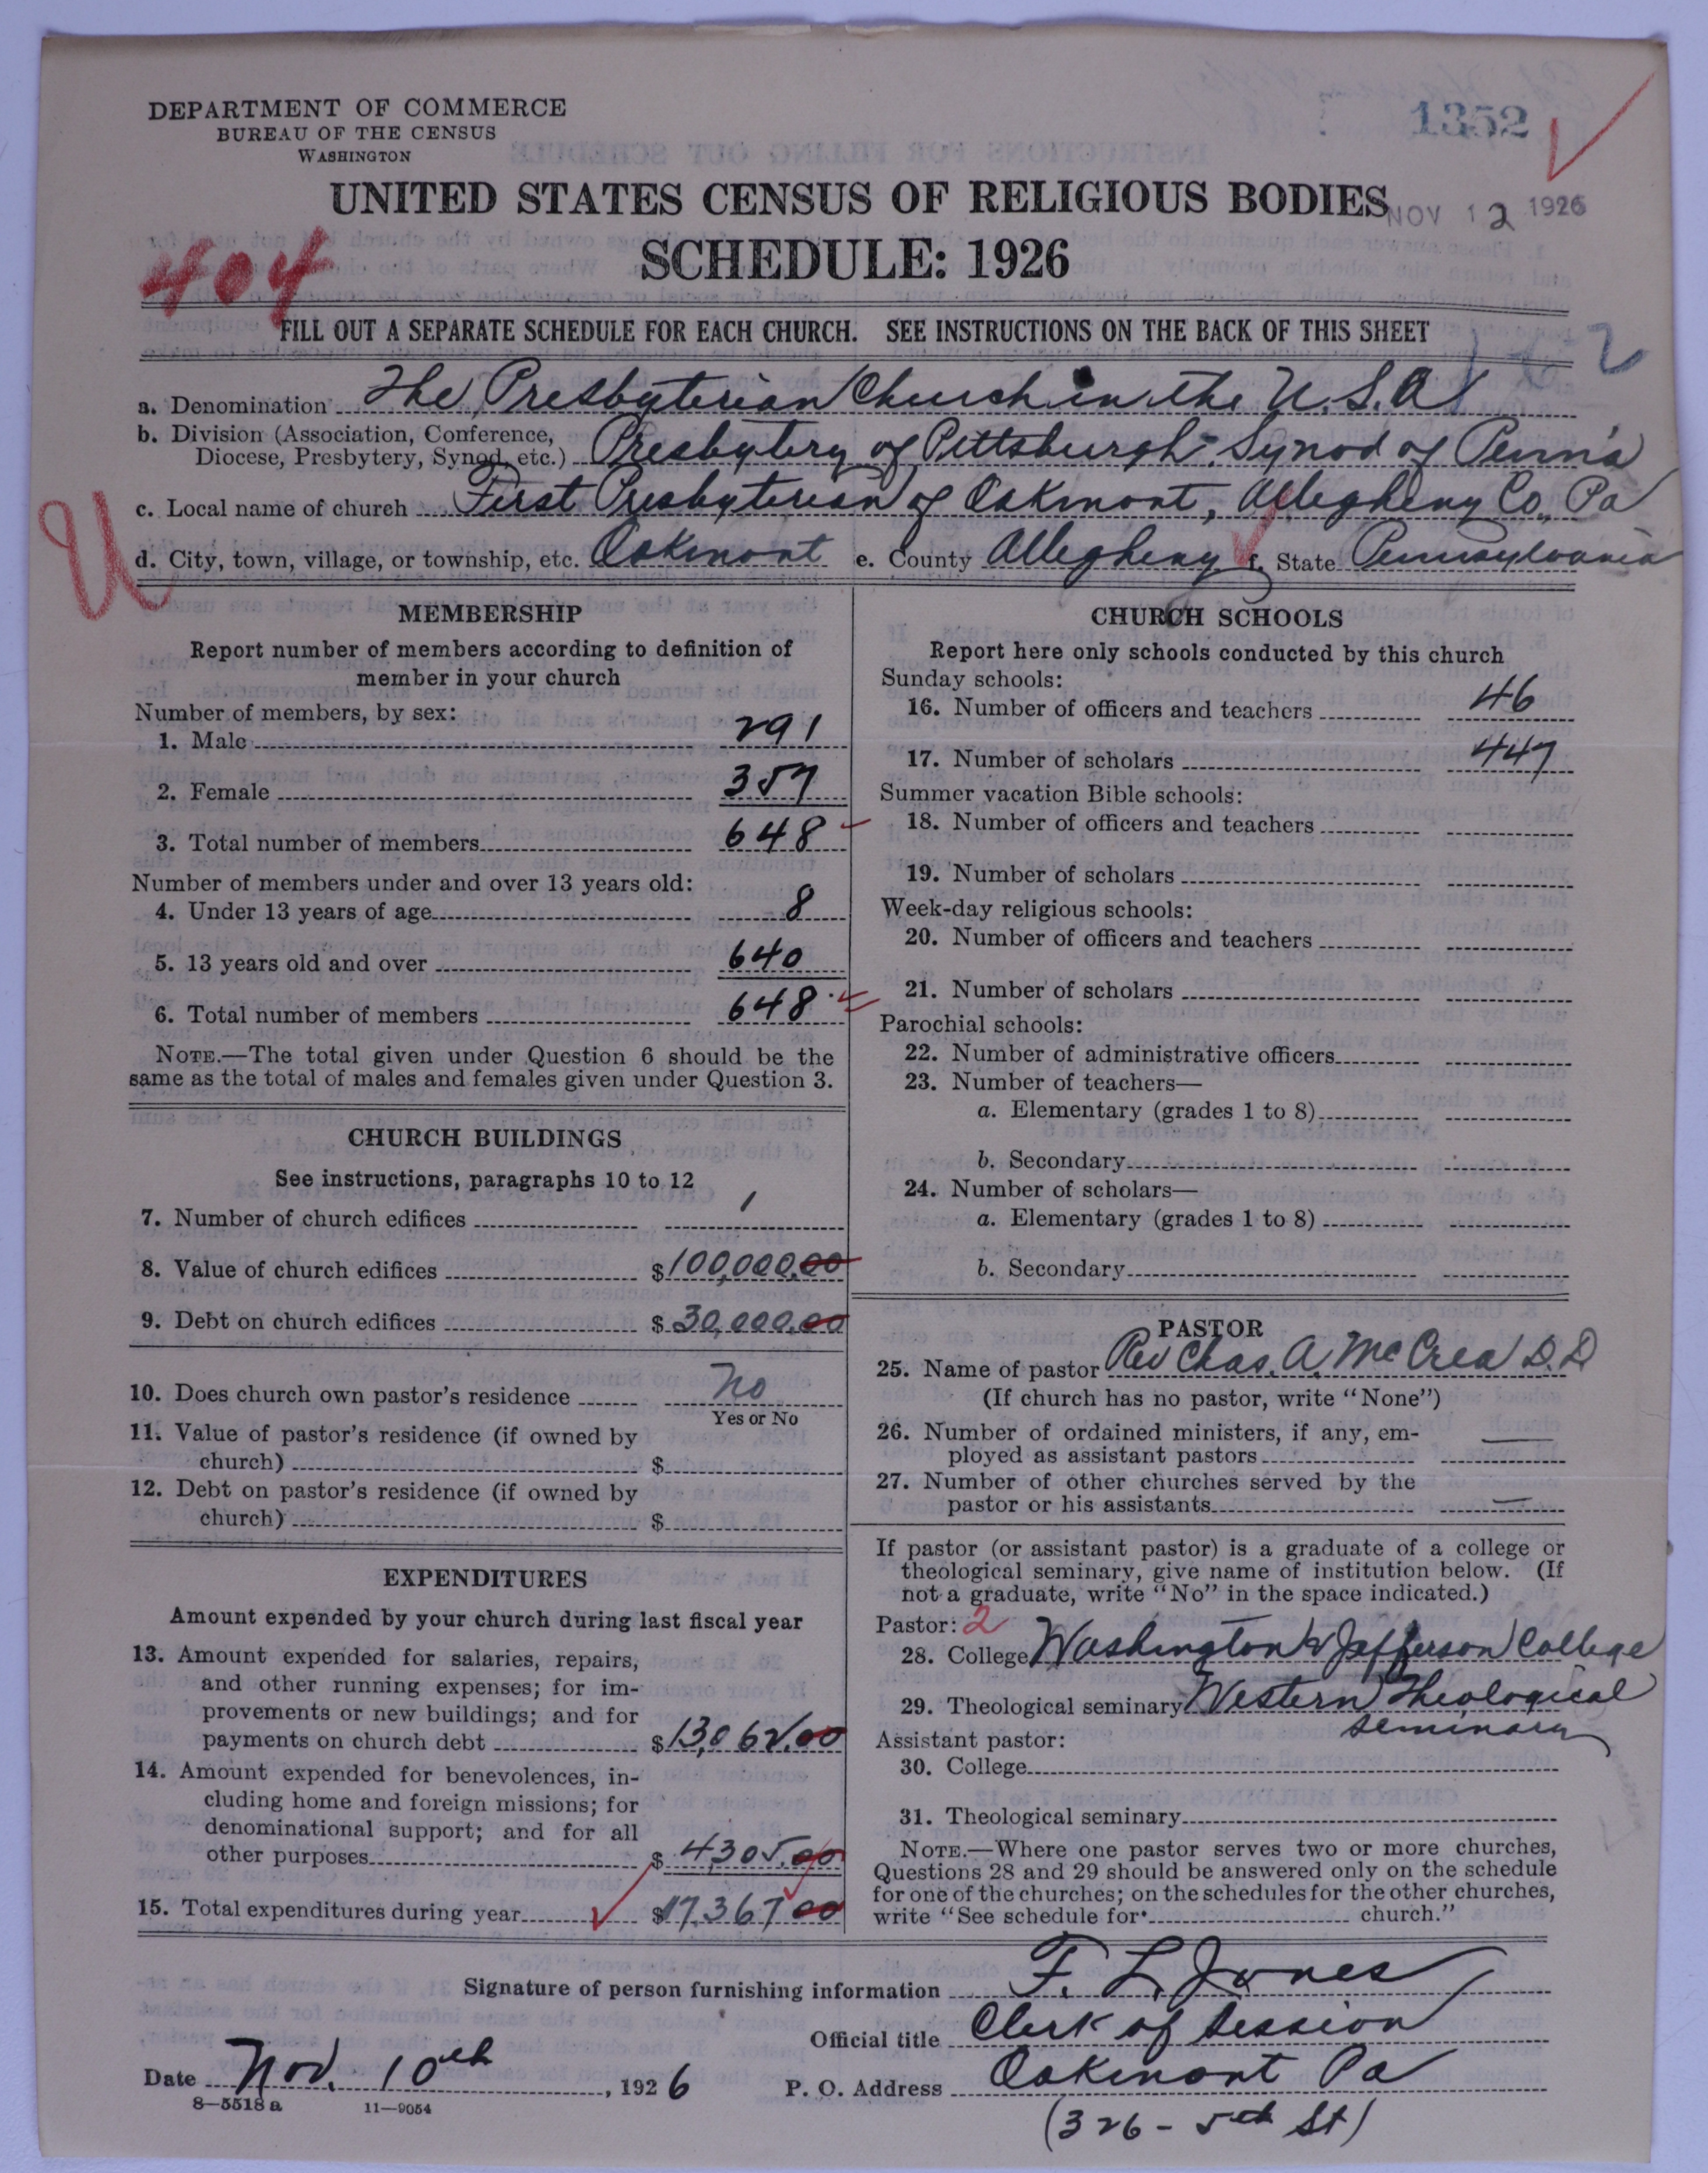 DEPARTMENT OF COMMERCE
BUREAU OF THE CENSUS
WASHINGTON
1352
UNITED STATES CENSUS OF RELIGIOUS BODIES
NOV 12 1926
SCHEDULE: 1926
404
FILL OUT A SEPARATE SCHEDULE FOR EACH CHURCH. SEE INSTRUCTIONS ON THE BACK OF THIS SHEET
a. Denomination The Presbyterian Church in the U.S.A
b. Division (Association, Conference,
Diocese, Presbytery, Synod, etc.) Presbytery of Pittsburgh - Synod of Penn'a
c. Local name of church First Presbyterian of Oakmont, Allegheny Co., Pa
U
d. City, town, village, or township, etc. Oakmont e. County Allegheny f. State Pennsylvania
MEMBERSHIP
Report number of members according to definition of
member in your church
Number of members, by sex:
1. Male 291
2. Female 357
3. Total number of members 648
Number of members under and over 13 years old:
4. Under 13 years of age 8
5. 13 years old and over 640
6. Total number of members 648
NOTE.—The total given under Question 6 should be the
same as the total of males and females given under Question 3.
CHURCH BUILDINGS
See instructions, paragraphs 10 to 12
7. Number of church edifices 1
8. Value of church edifices $100,000.00
9. Debt on church edifices $30,000.00
10. Does church own pastor's residence No
Yes or No
11. Value of pastor's residence (if owned by
church) $
12. Debt on pastor's residence (if owned by
church) $
EXPENDITURES
Amount expended by your church during last fiscal year
13. Amount expended for salaries, repairs,
and other running expenses; for im-
provements or new buildings; and for
payments on church debt $13,062.00
14. Amount expended for benevolences, in-
cluding home and foreign missions; for
denominational support; and for all
other purposes $4,305.00
15. Total expenditures during year $17,367 00
CHURCH SCHOOLS
Report here only schools conducted by this church
Sunday schools:
16. Number of officers and teachers 46
17. Number of scholars 447
Summer vacation Bible schools:
18. Number of officers and teachers
19. Number of scholars
Week-day religious schools:
20. Number of officers and teachers
21. Number of scholars
Parochial schools:
22. Number of administrative officers
23. Number of teachers—
a. Elementary (grades 1 to 8)
b. Secondary
24. Number of scholars—
a. Elementary (grades 1 to 8)
b. Secondary
PASTOR
25. Name of pastor Rev Chas. A. McCrea D.D
(If church has no pastor, write "None")
26. Number of ordained ministers, if any, em-
ployed as assistant pastors —
27. Number of other churches served by the
pastor or his assistants —
If pastor (or assistant pastor) is a graduate of a college or
theological seminary, give name of institution below. (If
not a graduate, write "No" in the space indicated.)
Pastor: 2
28. College Washington & Jefferson College
29. Theological seminary Western Theological
Seminary
Assistant pastor:
30. College
31. Theological seminary
NOTE.—Where one pastor serves two or more churches,
Questions 28 and 29 should be answered only on the schedule
for one of the churches; on the schedules for the other churches,
write "See schedule for church."
Signature of person furnishing information F. L. Jones
Official title Clerk of Session
Date Nov. 10th, 1926 P. O. Address Oakmont Pa
8—5518 a 11—9054
(326 - 5th St)